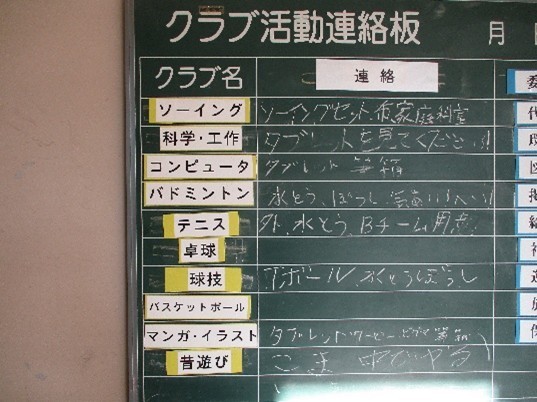 クラブ活動連絡板 月
クラブ名 連絡
ソーイング ソーイングセット 布 家庭科室
科学・工作 タブレットを見てください!!
コンピュータ タブレット 筆箱
バドミントン 水とう、ぼうし
テニス 外、水とう、Bチーム用意
卓球
球技 Tボール 水とうぼうし
バスケットボール
マンガ・イラスト タブレット 筆箱
昔遊び こま 中びやる